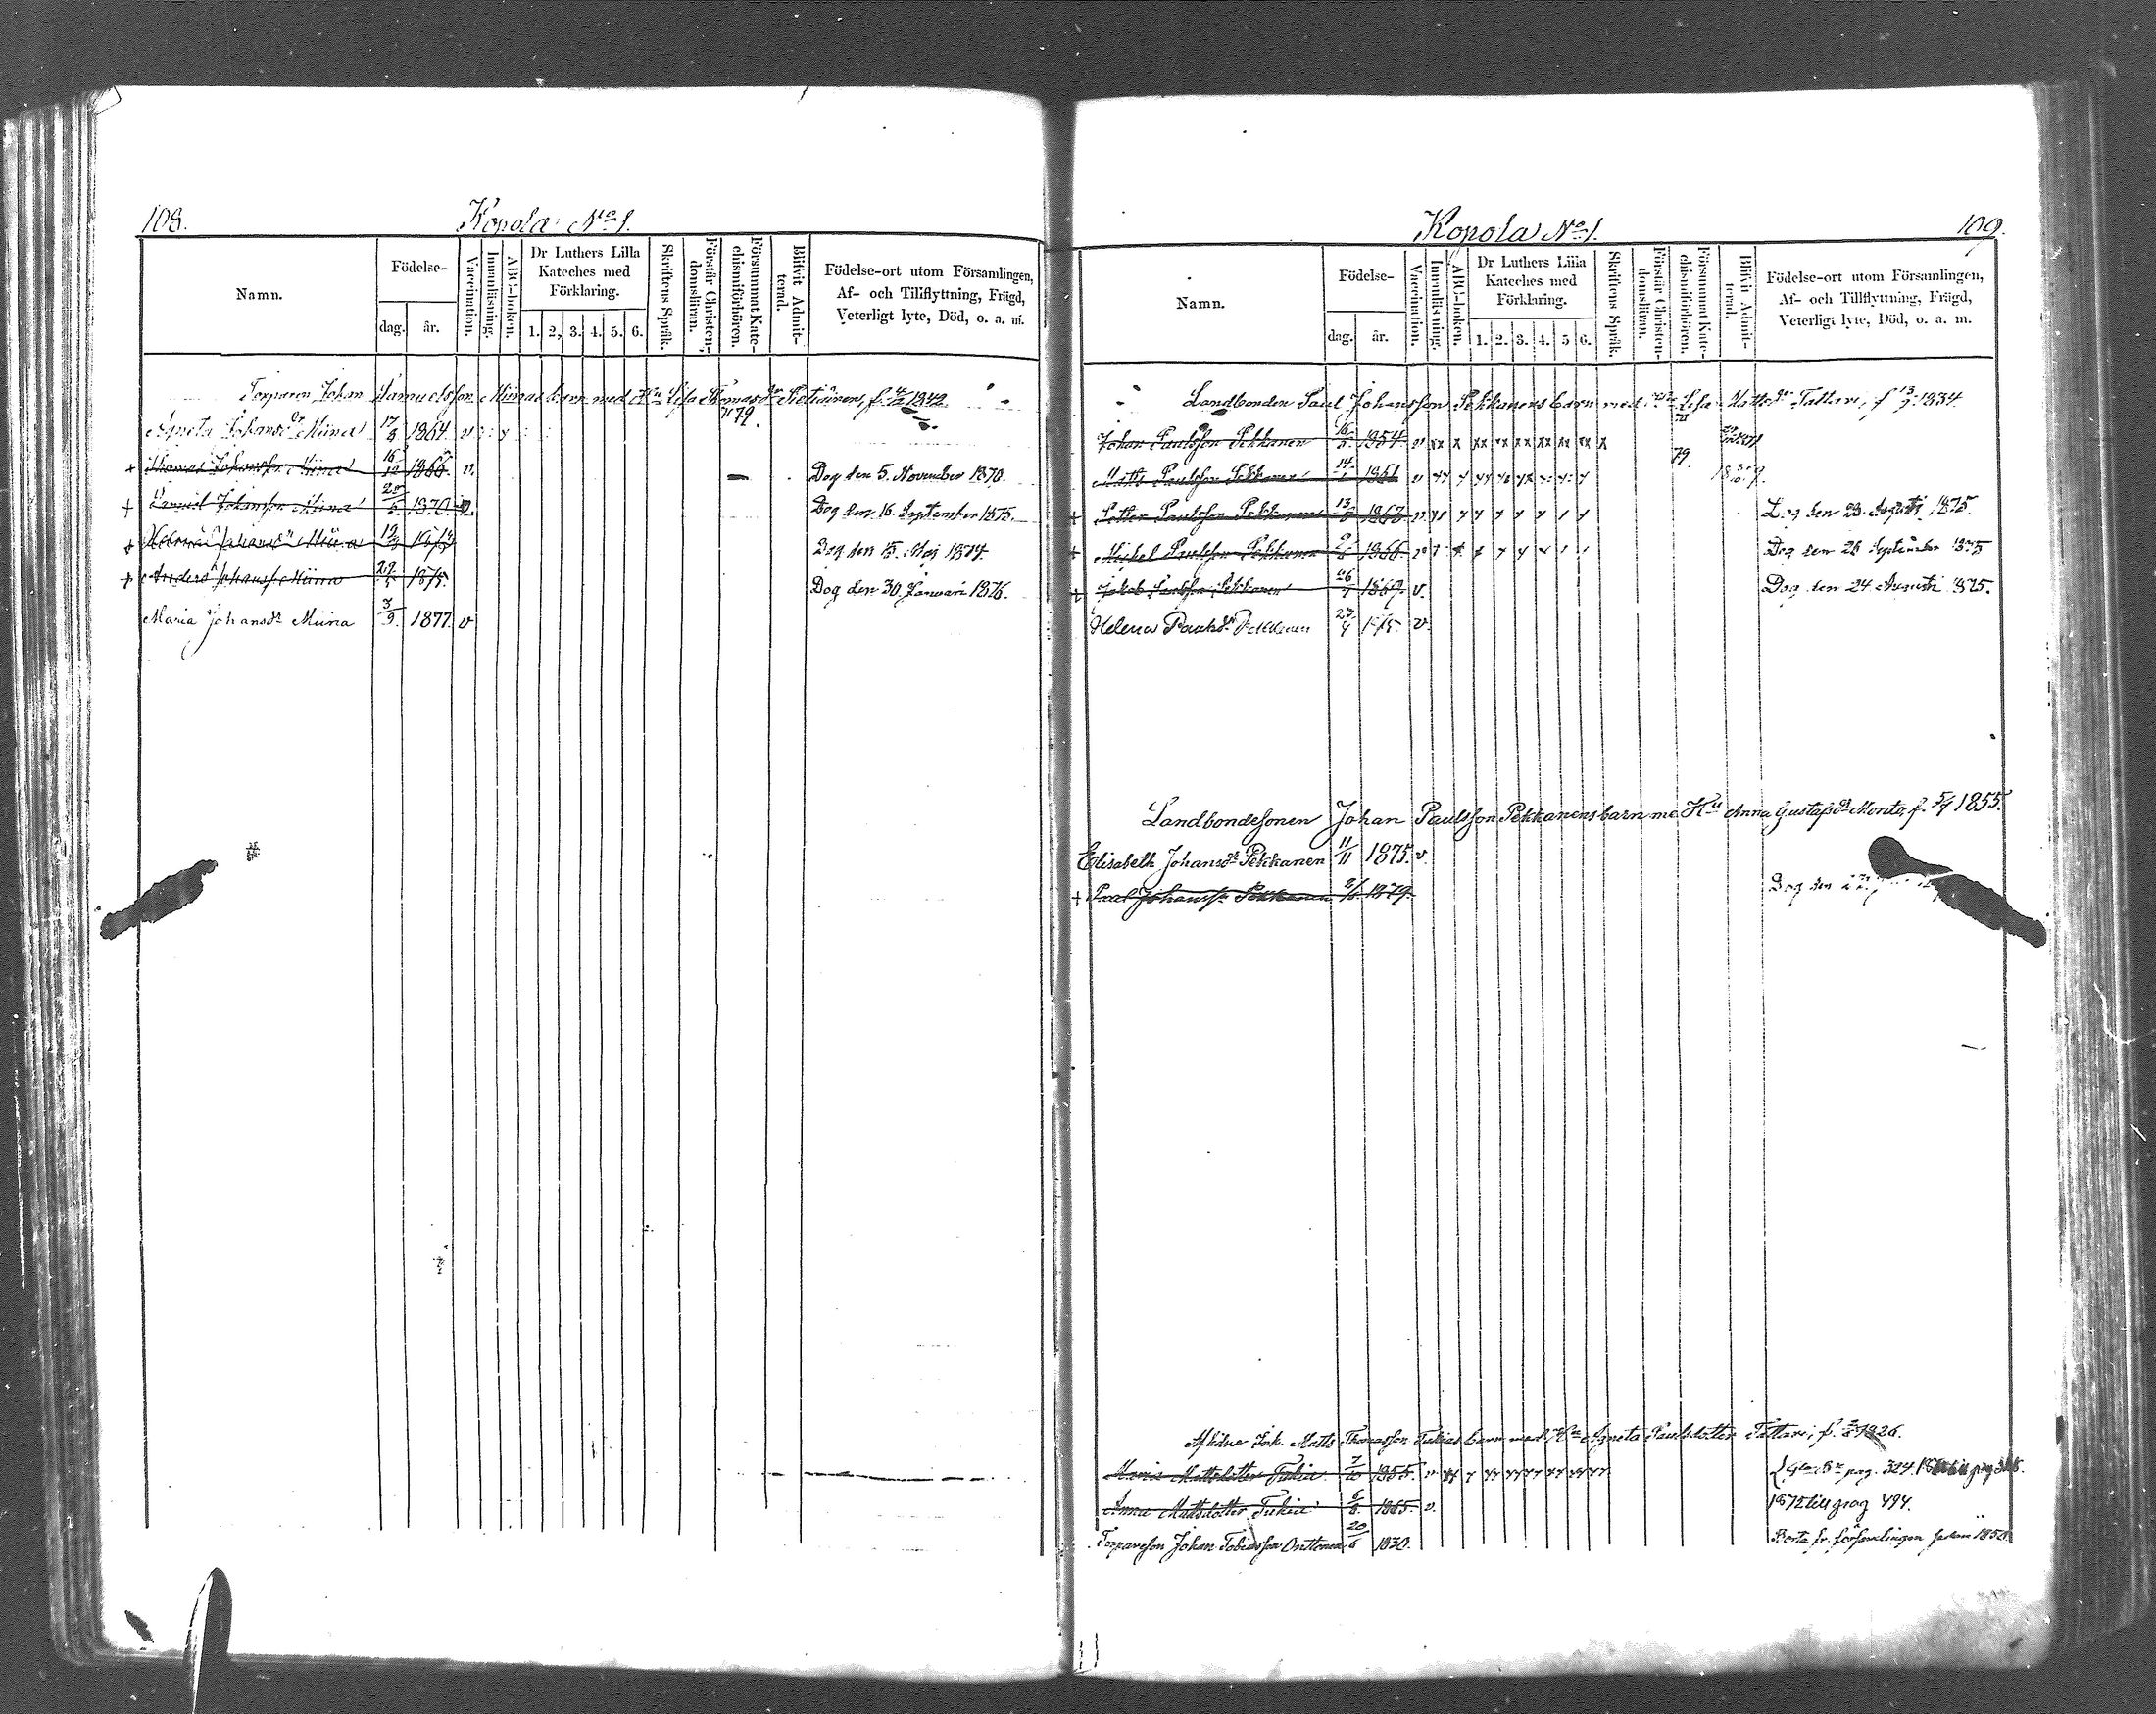 108.
Kopola No 1.
Namn.
Födelse-
dag.
år.
Vaccination.
Innanläsning.
ABC-boken.
Dr Luthers Lilla
Kateches med
Förklaring.
1. 2. 3. 4. 5. 6.
Skriftens Språk.
Förstår Christen-
domsläran.
Försummat Kate-
chismiförhören.
Blifvit Admit-
terad.
Födelse-ort utom Församlingen,
Af- och Tillflyttning, Frägd,
Veterligt lyte, Död, o. a. m.
Torparen Johan Samuelsson Miinas barn med Hu Lisa Thomasdr 1842
79.
Agneta Johansdr Miina 17/3 1864. v
+ Thomas Johansson Miina 16/12 1866. v. Dog den 5. November 1870.
+ Samuel Johansson Miina 1870 v. Dog den 16. September 1875.
+ Helena Johansdr Miina 19/3 Dog den 15. Maj 1874.
+ Anders Johanss. Miina 1875. Dog den 30. Januari 1876.
Maria Johansdr Miina 3/9 1877. v
Kopola No 1.
109.
Namn.
Födelse-
dag.
år.
Vaccination.
Innanläsning.
ABC-boken.
Dr Luthers Lilla
Kateches med
Förklaring.
1. 2. 3. 4. 5 6.
Skriftens Språk.
Förstår Christen-
domsläran.
Försummat Kate-
chismiförhören.
Blifvit Admit-
terad.
Födelse-ort utom Församlingen,
Af- och Tillflyttning, Frägd,
Veterligt lyte, Död, o. a. m.
Landbonden Paul Johansson Pekkanens barn med Lisa Mattsdr Tattari, f 1834.
Johan Paulsson Pekkanen 1854. v xx x xx xx xx xx xx xx x
Matts Paulsson Pekkanen 14 1861 v 79.
+ Petter Paulsson Pekkanen 13 1863 v Dog den 23. Augusti 1875.
+ Michel Paulsson Pekkanen 1866. v Dog den 26 September 1875
+ Jakob Paulsson Pekkanen 1869. v. Dog den 24 Augusti 1875.
Helena Paulsdr Pekkanen v.
Landbondesonen Johan Paulsson Pekkanens barn me Hu Anna Gustafsdr Monto, f. 5/7 1855.
Elisabeth Johansdr Pekkanen 11/11 1875. v.
+ Paul Johanss. Pekkanen 1879. Dog den
Aflidne Inh. Matts Thomasson Tukias barn med Hu Agneta Paulsdotter Tattari, f. 1826.
Maria Mattsdotter Tukia 7/10 1855. v pag. 324.
Anna Mattsdotter Tukia 6/8 1865. v. 1875 till pag 494.
Torpareson Johan Tobiasson Onttonen 20/6 1830. Borta fr. församlingen sedan 1850.